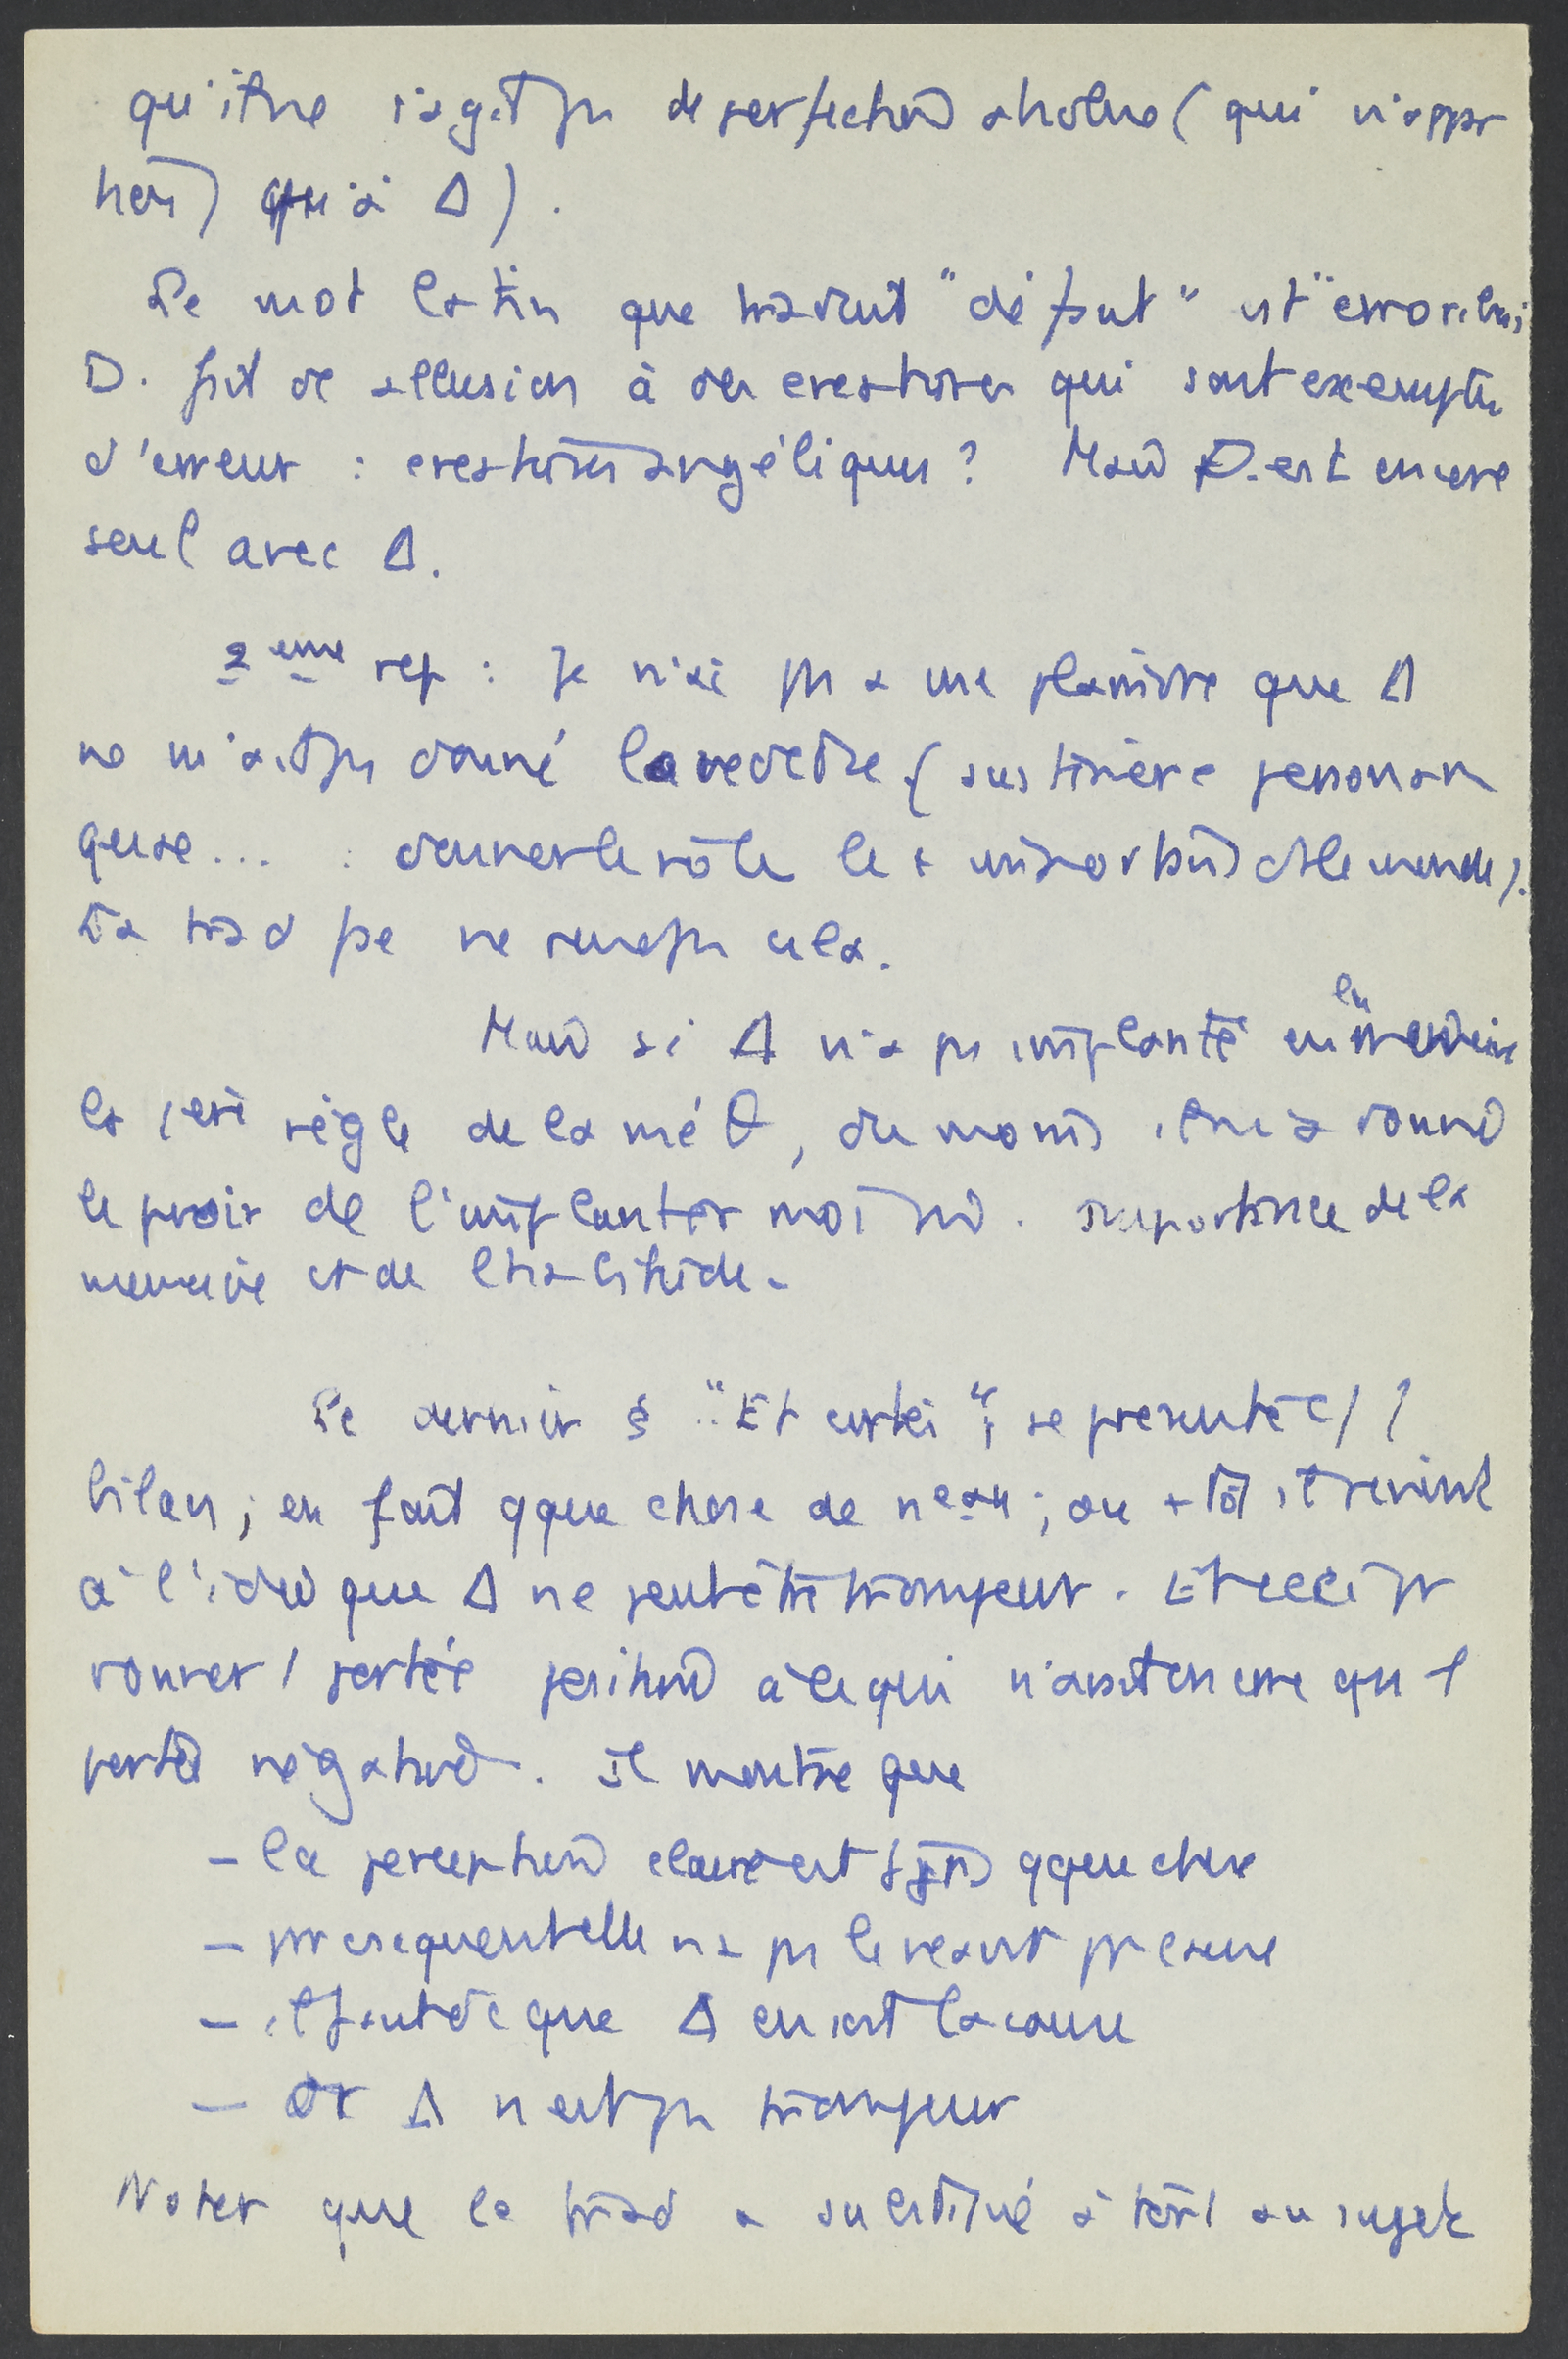 qu'il ne s'agit pas de perfection absolue (qui n'appar
tient qu'à Δ).
Le mot latin que traduit "défaut" est "erroribus"
D. fait de allusion à des creatures qui sont exemptes
d'erreur : creatures angéliques ? Mais D. est encore
seul avec Δ.
2ème rep : Je n'ai pas a me plaindre que Δ
ne m'ait pas donné la vedette (sustinere personam
quae... : donner le rôle le + important ds le monde).
La trad fse ne rend pas cela.
Mais si Δ n'a pas implanté en
la 1ère règle de la méθ, du moins il m'a donné
le pvoir de l'implanter moi. Importance de la
memoire et de l'habitude.
Le dernier § "Et certes" ; se presente c/ 1
bilan ; en fait qque chose de neau ; ou + tôt il revient
à l'idée que Δ ne peut être trompeur. Et ceci pr
donner 1 portée positive à ce qui n'avait encore qu'1
portée négative. Il montre que
- la perception claire est qque chose
- par csequent elle n'a pas le neant pr cause
- il faut dc que Δ en soit la cause
- Or Δ n'est pas trompeur
Noter que la trad a substitué à tort au sujet